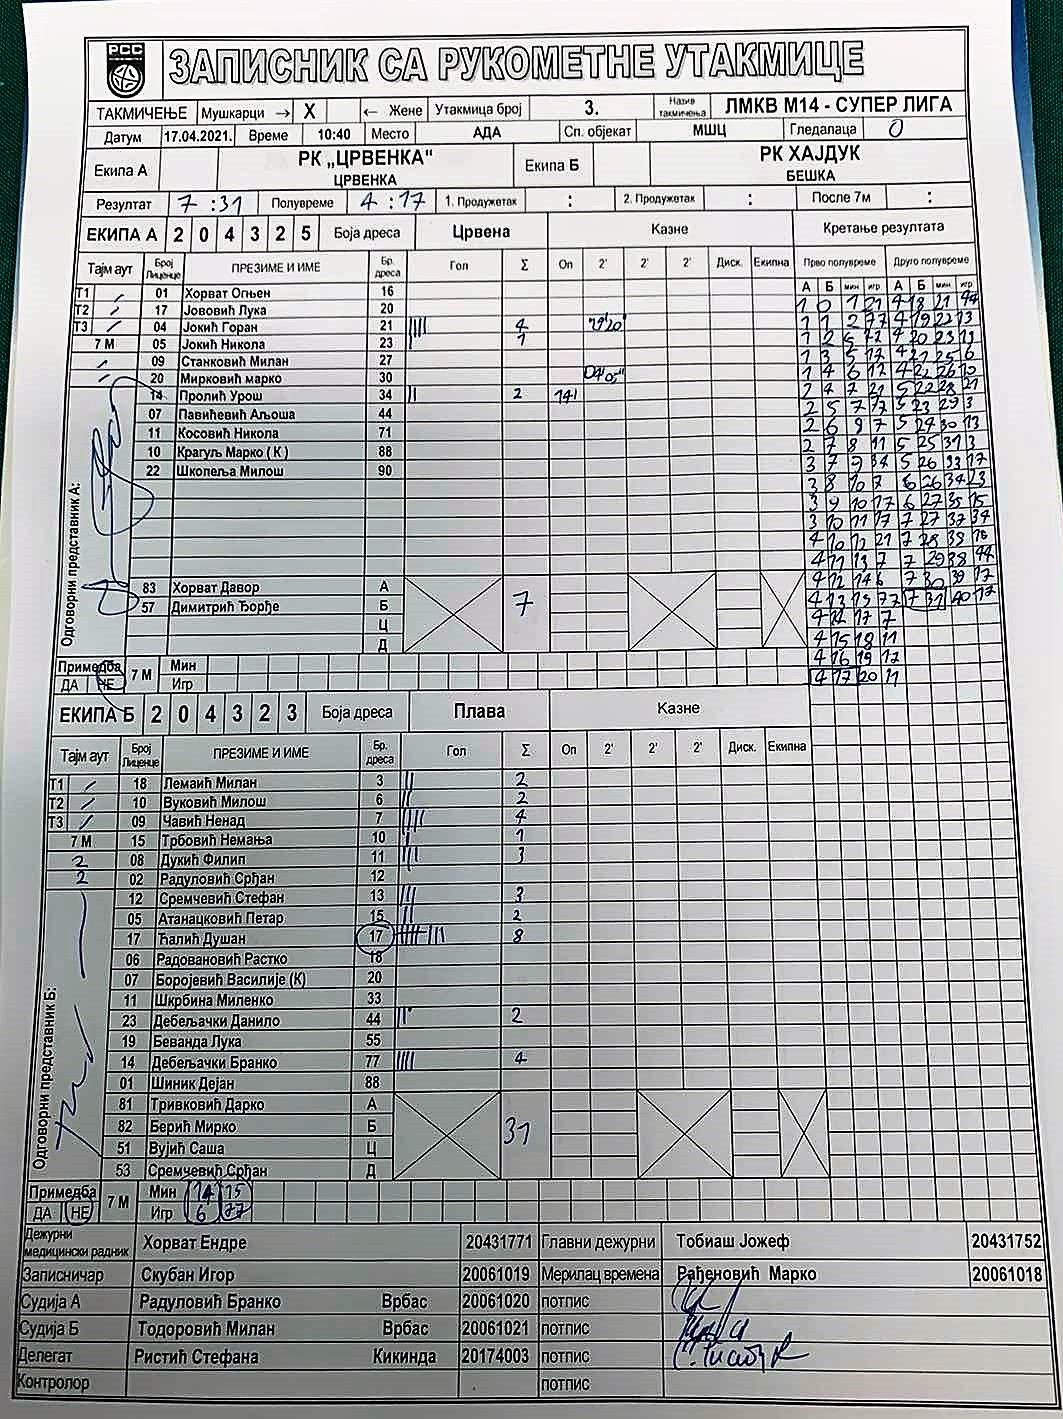 РСС
ЗАПИСНИК СА РУКОМЕТНЕ УТАКМИЦЕ
ТАКМИЧЕЊЕ Мушкарци → X ← Жене Утакмица број 3. Назив такмичења ЛМКВ М14 - СУПЕР ЛИГА
Датум 17.04.2021. Време 10:40 Место АДА Сп. објекат МШЦ Гледалаца 0
Екипа А РК „ЦРВЕНКА“ Екипа Б РК ХАЈДУК
ЦРВЕНКА БЕШКА
Резултат 7 : 31 Полувреме 4 : 17 1. Продужетак : 2. Продужетак : После 7м :
ЕКИПА А 2 0 4 3 2 5 Боја дреса Црвена Казне Кретање резултата
Тајм аут Број Лиценце ПРЕЗИМЕ И ИМЕ Бр. дреса Гол Σ Оп 2' 2' 2' Диск. Екипна Прво полувреме Друго полувреме
А Б мин игр А Б мин игр
Т1 01 Хорват Огњен 16
Т2 17 Јововић Лука 20
Т3 04 Јокић Горан 21 4
7 М 05 Јокић Никола 23 1
09 Станковић Милан 27
20 Мирковић марко 30
14 Пролић Урош 34 2 14'
07 Павићевић Аљоша 44
11 Косовић Никола 71
10 Крагуљ Марко ( К ) 88
22 Шкопеља Милош 90
83 Хорват Давор А 7
57 Димитрић Ђорђе Б
Ц
Д
Одговорни представник А:
Примедба ДА НЕ 7 М Мин
Игр
1 0 1 21 4 18 21 44
1 1 2 77 4 19 22 13
1 3 5 17 4 21 25 6
2 5 7 17 5 23 29 3
2 6 9 7 5 24 30 13
2 7 8 11 5 25 31 3
3 7 9 34 5 26 33 17
3 8 10 7 6 26 34 23
3 9 10 17 6 27 35 15
3 10 11 17 7 27 37 34
4 11 13 7 7 29 38 44
4 12 14 6 7 30 39 17
4 13 15 77 7 31 40 17
4 14 17 7
4 15 18 11
4 16 19 17
4 17 20 11
ЕКИПА Б 2 0 4 3 2 3 Боја дреса Плава Казне
Тајм аут Број Лиценце ПРЕЗИМЕ И ИМЕ Бр. дреса Гол Σ Оп 2' 2' 2' Диск. Екипна
Т1 18 Лемаић Милан 3 2
Т2 10 Вуковић Милош 6 2
Т3 09 Чавић Ненад 7 4
7 М 15 Трбовић Немања 10 1
2 08 Дукић Филип 11 3
2 02 Радуловић Срђан 12
12 Сремчевић Стефан 13 3
05 Атанацковић Петар 15 2
17 Ћалић Душан 17 8
06 Радовановић Растко 18
07 Боројевић Василије (К) 20
11 Шкрбина Миленко 33
23 Дебељачки Данило 44 2
19 Беванда Лука 55
14 Дебељачки Бранко 77 4
01 Шиник Дејан 88
81 Тривковић Дарко А
82 Берић Мирко Б 31
51 Вујић Саша Ц
53 Сремчевић Срђан Д
Одговорни представник Б:
Примедба ДА НЕ 7 М Мин 14 15
Игр 6 77
Дежурни медицински радник Хорват Ендре 20431771 Главни дежурни Тобиаш Јожеф 20431752
Записничар Скубан Игор 20061019 Мерилац времена Рађеновић Марко 20061018
Судија А Радуловић Бранко Врбас 20061020 потпис
Судија Б Тодоровић Милан Врбас 20061021 потпис
Делегат Ристић Стефана Кикинда 20174003 потпис
Контролор потпис